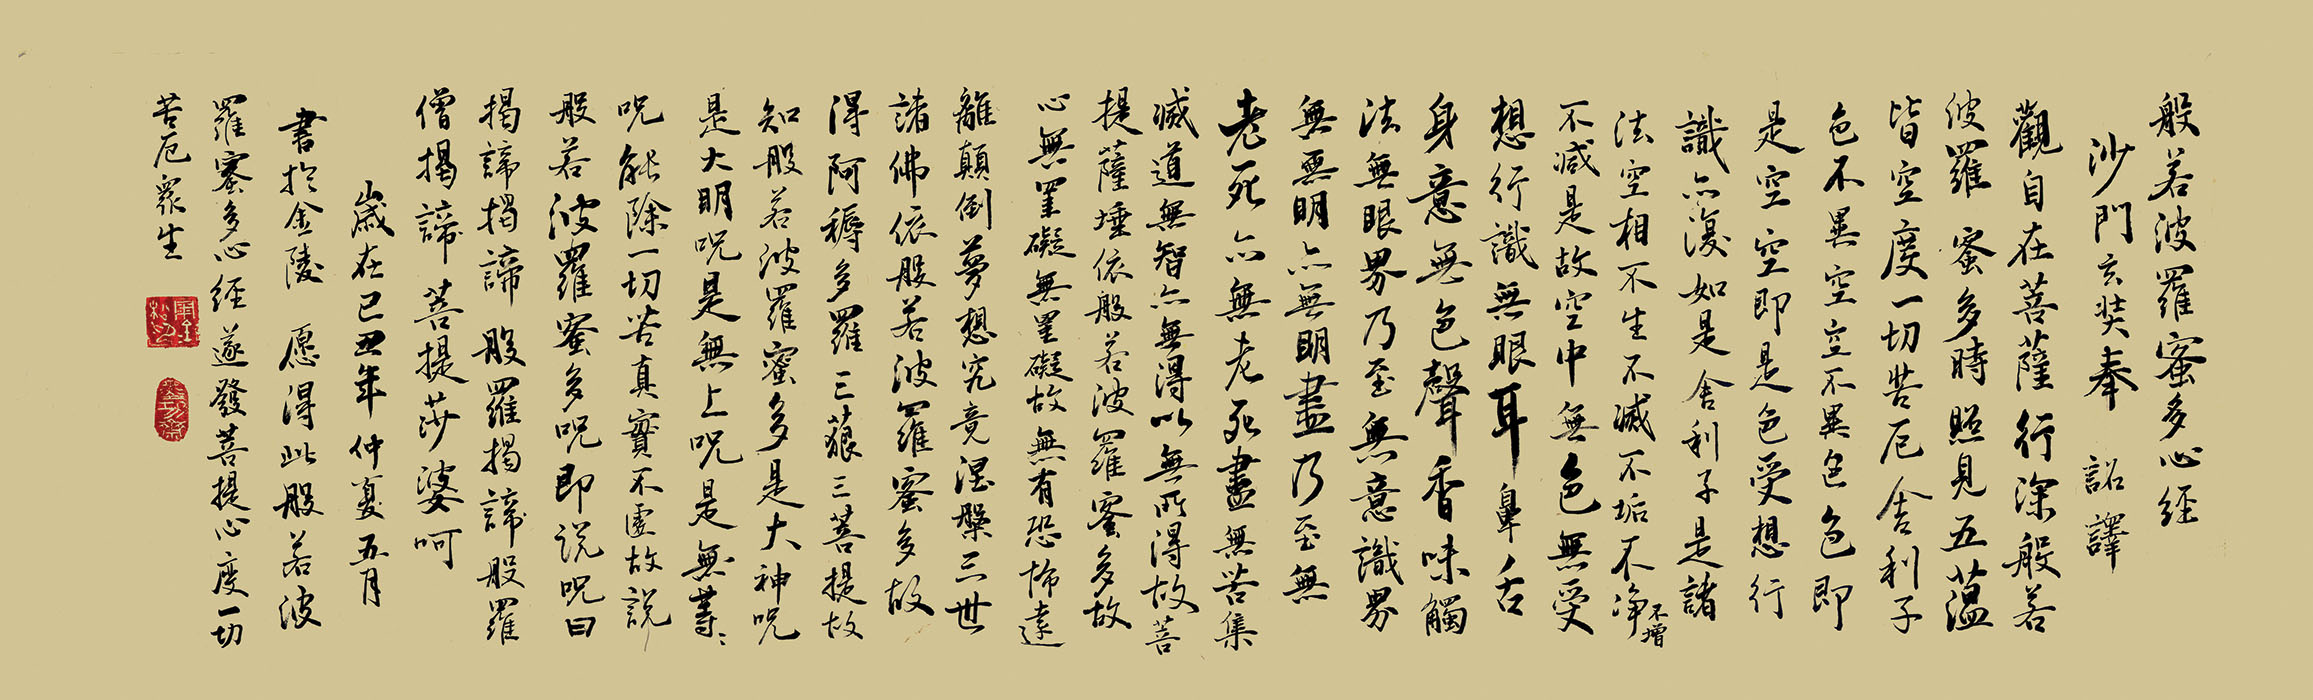 般若波羅蜜多心经
沙門玄奘奉 詔譯
觀自在菩薩行深般若
波羅蜜多時照見五蕴
皆空度一切苦厄舍利子
色不異空空不異色色即
是空空即是色受想行
識亦復如是舍利子是諸
法空相不生不滅不垢不净不增
不減是故空中無色無受
想行識無眼耳鼻舌
身意無色聲香味觸
法無眼界乃至無意識界
無無明亦無明盡乃至無
老死亦無老死盡無苦集
滅道無智亦無得以無所得故菩
提薩埵依般若波羅蜜多故
心無罣礙無罣礙故無有恐怖遠
離顛倒夢想究竟涅槃三世
諸佛依般若波羅蜜多故
得阿耨多羅三藐三菩提故
知般若波羅蜜多是大神呪
是大明呪是無上呪是無等〻
呪能除一切苦真實不虛故説
般若波羅蜜多呪即説呪曰
揭諦揭諦 般羅揭諦般羅
僧揭諦 菩提莎婆呵
歲在己丑年仲夏五月
書於金陵 愿得此般若波
羅蜜多心经遂發菩提心度一切
苦厄眾生